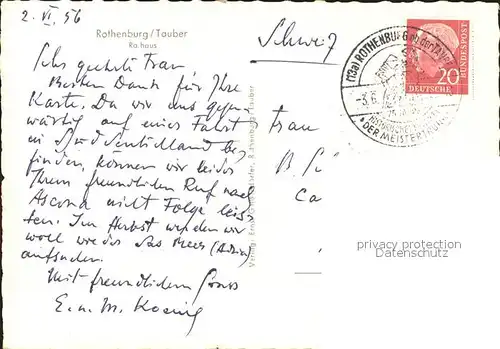 2. VI. 56
Rothenburg/Tauber
Rathaus
Sehr geehrte Frau
Besten Dank für Ihre
Karte. Da wir uns gegen-
wärtig auf einer Fahrt
in Süddeutschland be-
finden, können wir leider
Ihrem freundlichen Ruf nach
Ascona nicht Folge leis-
ten. Im Herbst werden wir
wohl wieder das Meer (Adria)
aufsuchen.
Mit freundlichem Gruss
E. u. M. Koenig
Schweiz
Frau
(13a) ROTHENBURG ob der TAUBER
DER MEISTERTRUNK
20
DEUTSCHE
BUNDESPOST
Verlag: Rothenburg/Tauber
privacy protection
Datenschutz